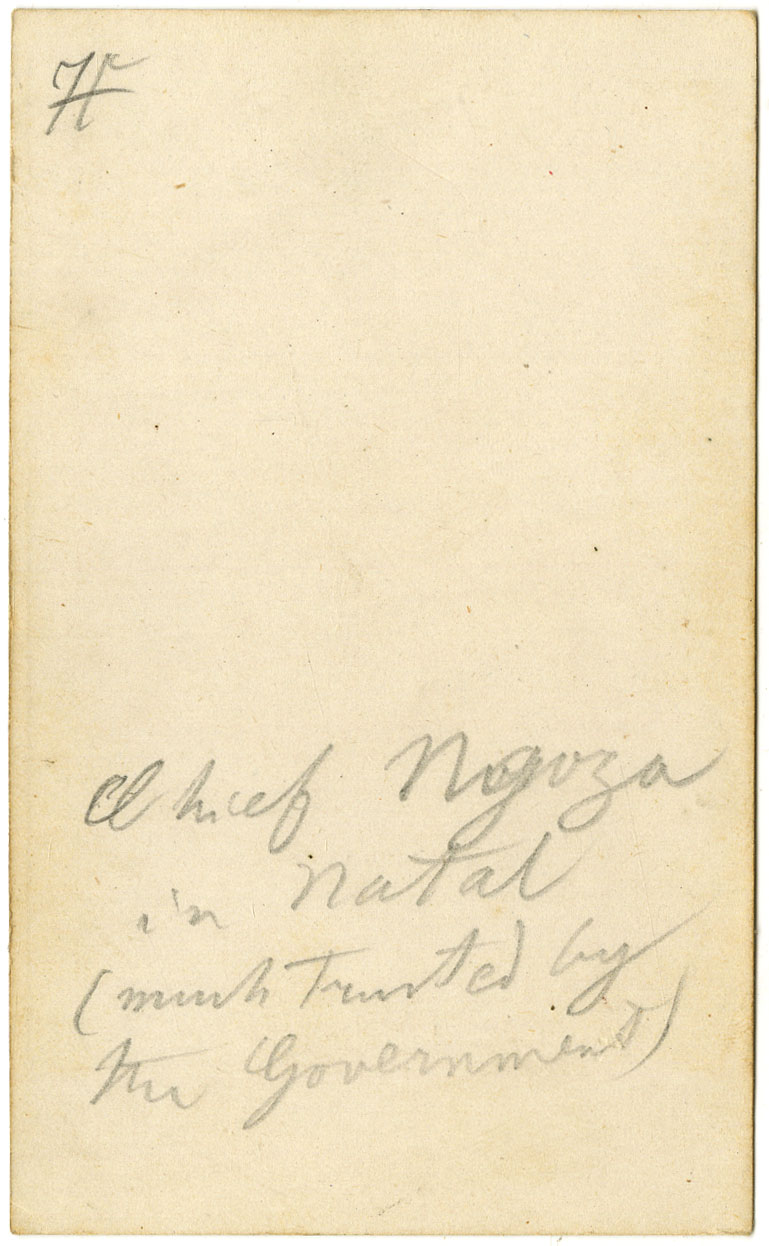 Chief Ngoza
in Natal
(much trusted by
the Government)